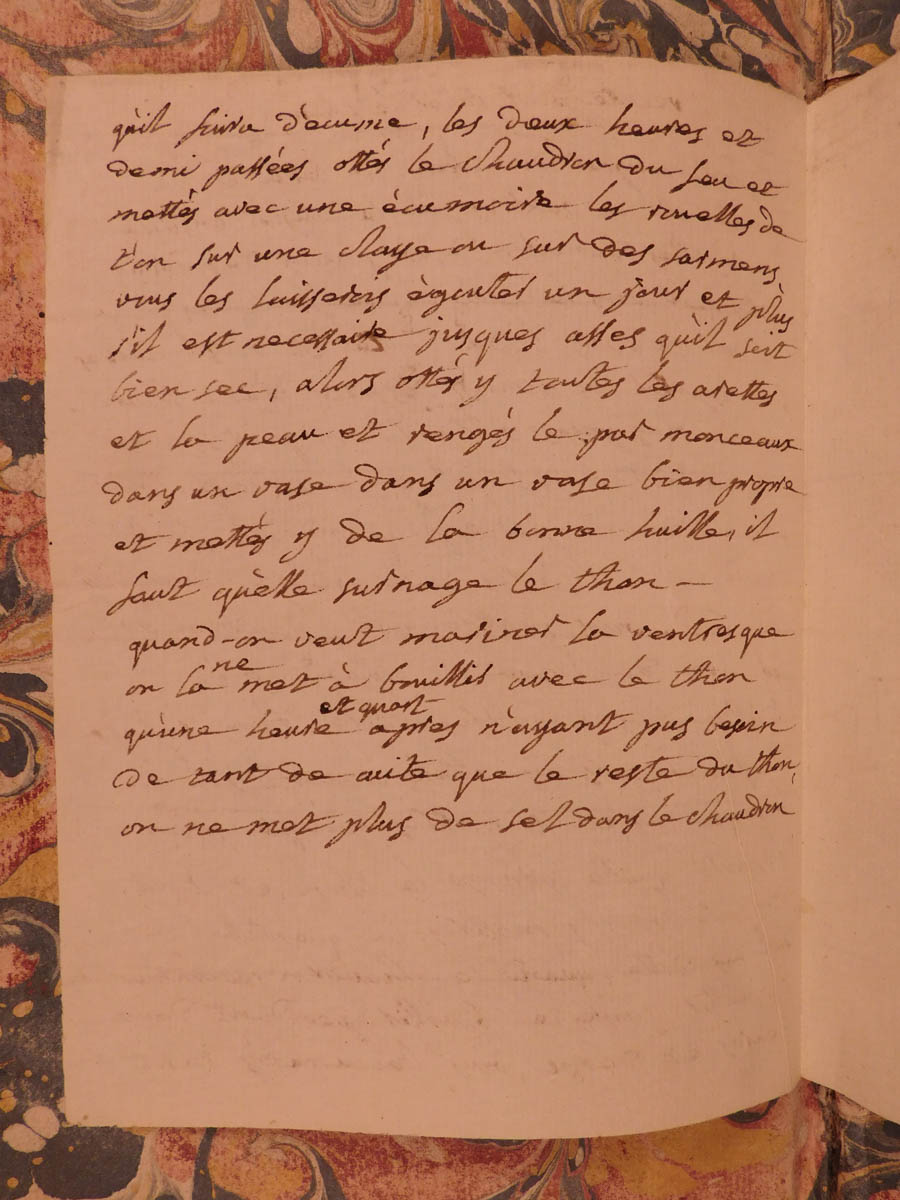 qu'il faira d'ecume, les deux heures et
demi passées ottés le chaudron du feu et
mettés avec une ècumoire les ruelles de
t'on sur une claye ou sur des sarmens
vous les laisserois ègouter un jour et plus
s'il est necessaire jusques asses qu'il soit
bien sec, alors ottés y toutes les arettes
et la peau et rengés le par monceaux
dans un vase dans un vase bien propre
et mettés y de la bonne huille, il
faut qu'elle surnage le thon —
quand-on veut mariner la ventresque
on la ne met à bouillir avec le thon
qu'une heure et quart apres n'ayant pas besoin
de tant de cuite que le reste du thon,
on ne met plus de sel dans le chaudron